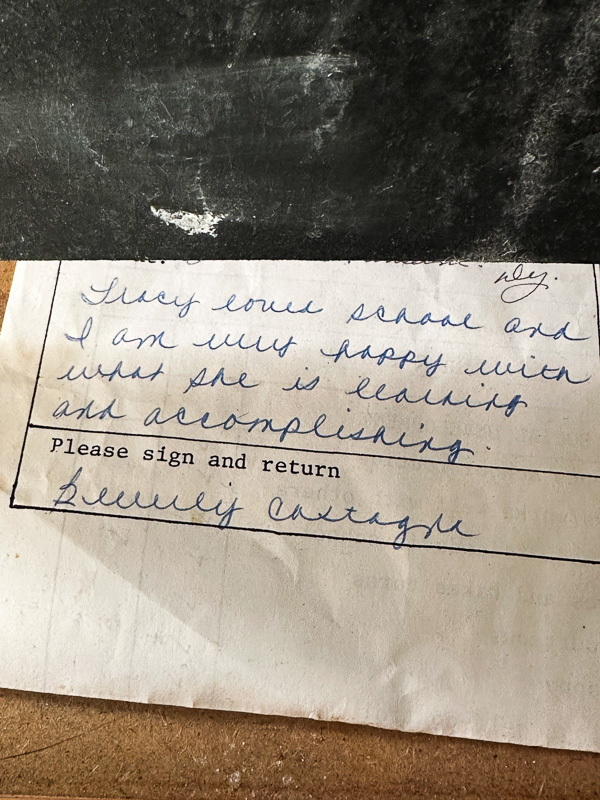 Tracy loves school and
I am very happy with
what she is learning
and accomplishing.
Please sign and return
Beverly Castagna